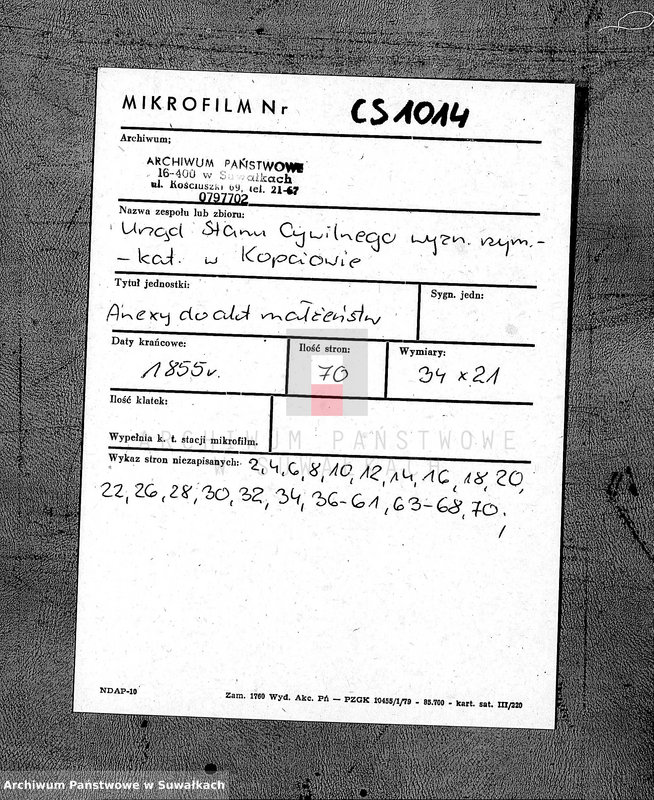 MIKROFILM Nr CS 1014
Archiwum;
ARCHIWUM PAŃSTWOWE
16-400 w Suwałkach
ul. Kościuszki 69, tel. 21-67
0797702
Nazwa zespołu lub zbioru:
Urząd Stanu Cywilnego wyzn. rzym.-
-kat. w Kopciowie
Tytuł jednostki:
Sygn. jedn:
Anexy do akt małżeństw
Daty krańcowe:
Ilość stron:
Wymiary:
1855r.
70
34 x 21
Ilość klatek:
Wypełnia k. t. stacji mikrofilm.
ARCHIWUM PAŃSTWOWE
W SUWAŁKACH
Wykaz stron niezapisanych: 2,4,6,8,10,12,14,16,18,20,
22,26,28,30,32,34,36-61,63-68,70.
NDAP-10
Zam. 1760 Wyd. Akc. Pń — PZGK 10455/1/79 - 85.700 - kart. sat. III/220
Archiwum Państwowe w Suwałkach